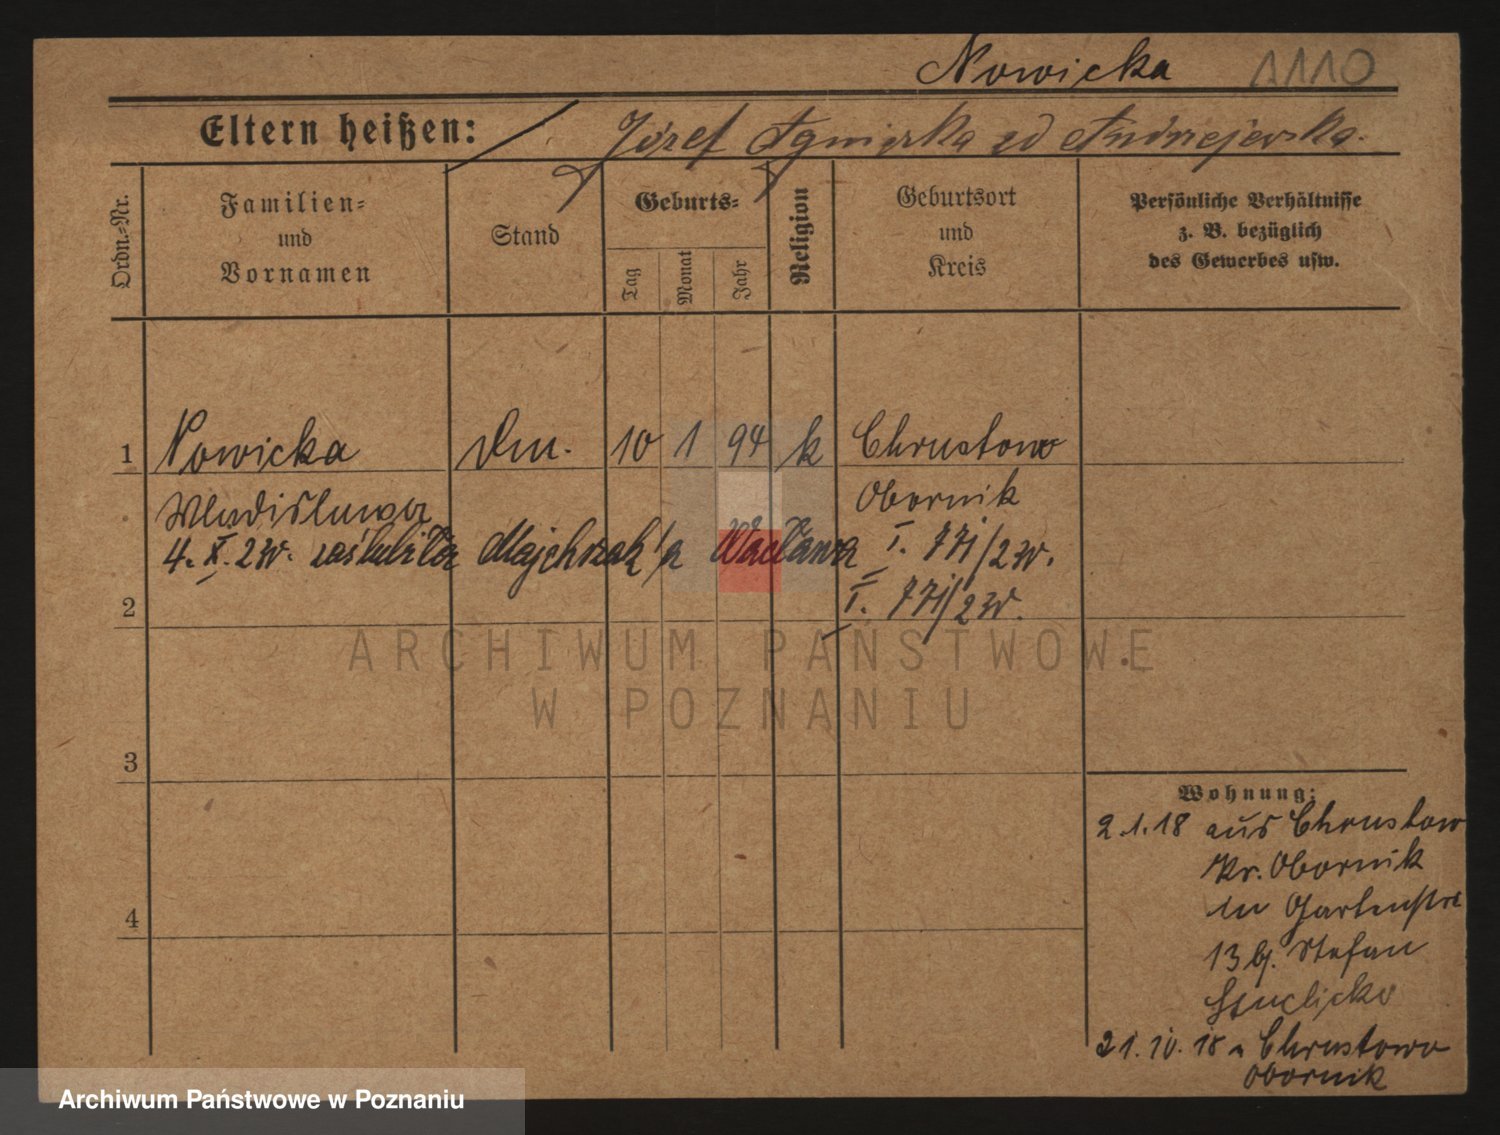 Nowicka 1110
Eltern heißen: Józef Agnieszka zd Andrzejewska.
Ordn.-Nr.
Familien-
und
Vornamen
Stand
Geburts-
Tag
Monat
Jahr
Religion
Geburtsort
und
Kreis
Persönliche Verhältnisse
z. B. bezüglich
des Gewerbes usw.
1 Nowicka Dm. 10 1 94 k Chrustowo
Wladislawa Obornik
4. X. 20. zaślubiła Majchrzak/a Wacława I. 771/20.
2 I. 771/20.
ARCHIWUM PAŃSTWOWE
W POZNANIU
3
Wohnung:
2.1.18 aus Chrustowo
Kr. Obornik
in Gartenstr
4
13 bj. Stefan
21.10.18 n Chrustowo
Obornik
Archiwum Państwowe w Poznaniu